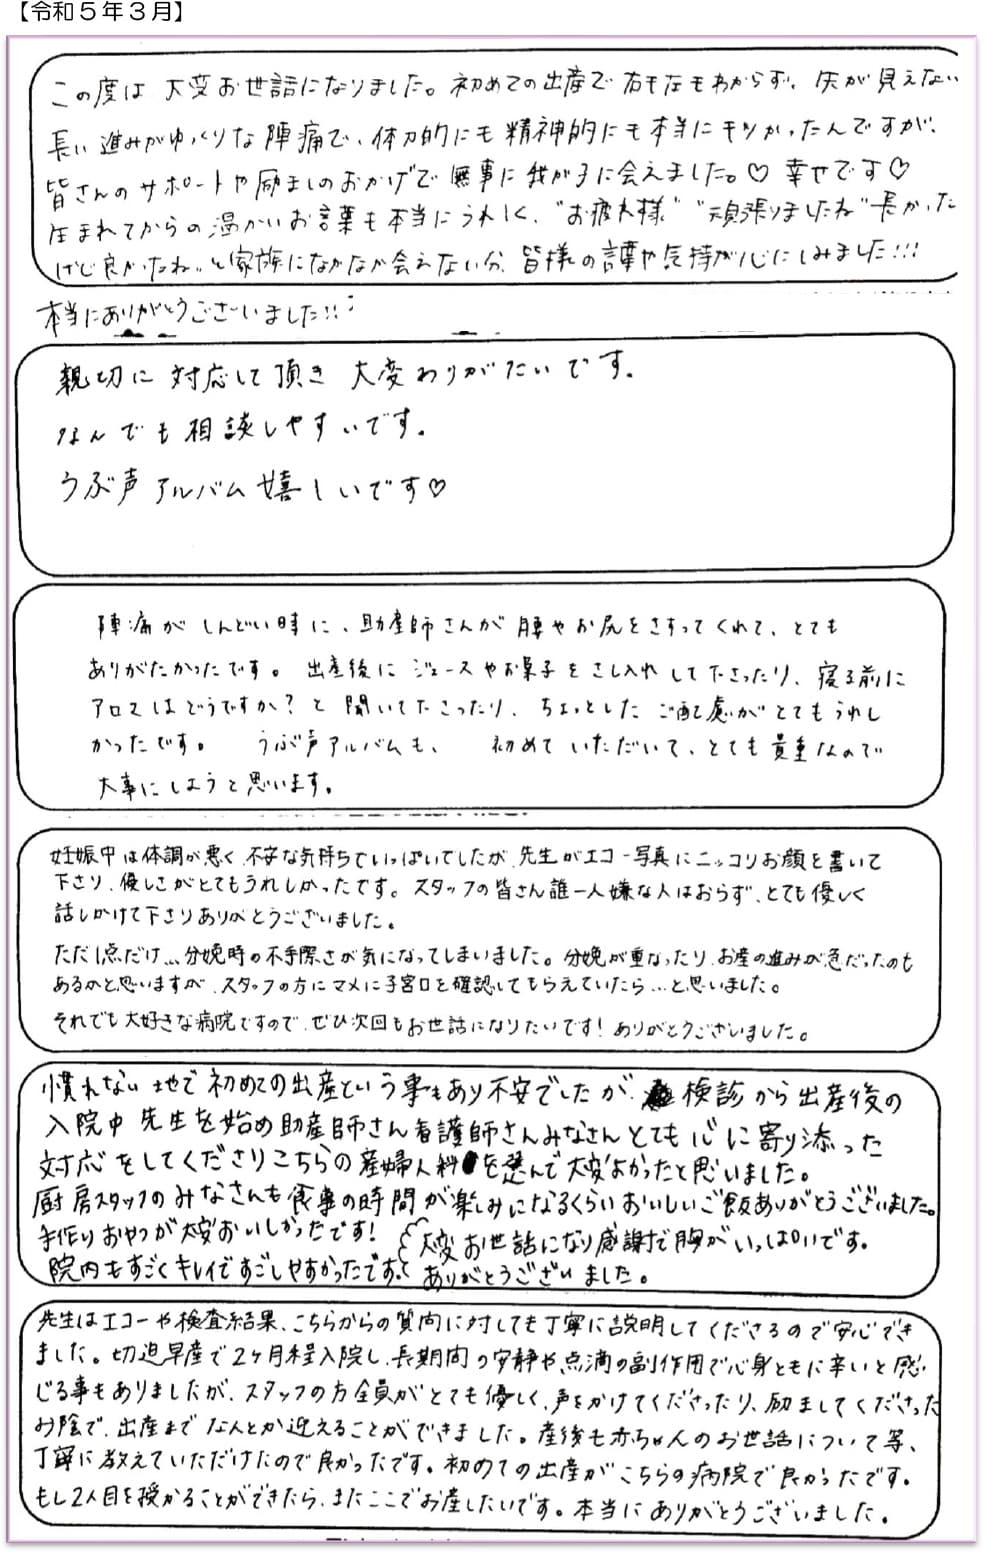 【令和５年３月】
この度は 大変お世話になりました。初めての出産で右も左もわからず、先が見えない
長い進みがゆっくりな陣痛で、体力的にも精神的にも本当にキツかったんですが、
皆さんのサポートや励ましのおかげで無事に我が子に会えました。♡ 幸せです♡
産まれてからの温かいお言葉も本当にうれしく、"お疲れ様" "頑張りましたね" 長かった
けど良かったね"と家族になかなか会えない分、皆様の言葉や気持が心にしみました!!!
本当にありがとうございました!!
親切に対応して頂き 大変ありがたいです。
なんでも相談しやすいです。
うぶ声アルバム嬉しいです♡
陣痛がしんどい時に、助産師さんが腰やお尻をさすってくれて、とても
ありがたかったです。 出産後にジュースやお菓子をさし入れして下さったり、寝る前に
アロマはどうですか?と聞いて下さったり、ちょっとしたご配慮がとてもうれし
かったです。 うぶ声アルバムも、 初めていただいて、とても貴重なので
大事にしようと思います。
妊娠中は体調が悪く、不安な気持ちでいっぱいでしたが、先生がエコー写真にニッコリお顔を書いて
下さり、優しさがとてもうれしかったです。スタッフの皆さん誰一人嫌な人はおらず、とても優しく
話しかけて下さりありがとうございました。
ただ1点だけ…分娩時の不手際さが気になってしまいました。分娩が重なったり、お産の進みが急だったのも
あるかと思いますが、スタッフの方にマメに子宮口を確認してもらえていたら…と思いました。
それでも大好きな病院ですので、ぜひ次回もお世話になりたいです! ありがとうございました。
慣れない地で初めての出産という事もあり不安でしたが、検診から出産後の
入院中 先生を始め助産師さん看護師さんみなさんとても心に寄り添った
対応をしてくださりこちらの産婦人科を選んで大変よかったと思いました。
厨房スタッフのみなさんも食事の時間が楽しみになるくらいおいしいご飯ありがとうございました。
手作りおやつが大変おいしかったです!
院内もすごくキレイですごしやすかったです。
大変お世話になり感謝で胸がいっぱいです。
ありがとうございました。
先生はエコーや検査結果、こちらからの質問に対しても丁寧に説明してくださるので安心でき
ました。切迫早産で2ヶ月程入院し、長期間の安静や点滴の副作用で心身ともに辛いと感
じる事もありましたが、スタッフの方全員がとても優しく、声をかけてくださったり、励ましてくださった
お陰で、出産までなんとか迎えることができました。産後も赤ちゃんのお世話について等、
丁寧に教えていただけたので良かったです。初めての出産がこちらの病院で良かったです。
もし2人目を授かることができたら、またここでお産したいです。本当にありがとうございました。